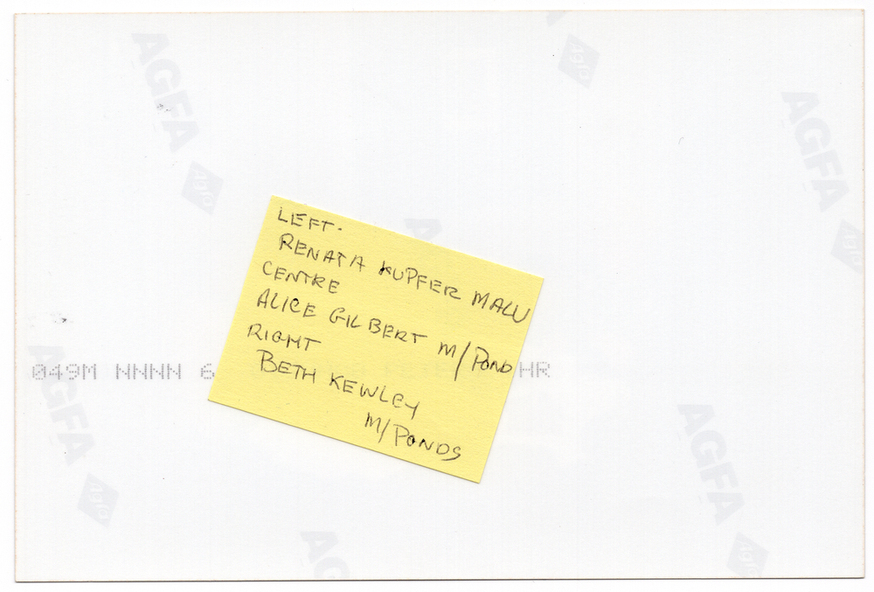 AGFA
AGFA
LEFT.
RENATA KUPFER MALU
CENTRE
ALICE GILBERT M/POND
RIGHT
BETH KEWLEY
M/PONDS
049M NNNN 6
HR
AGFA
AGFA
AGFA